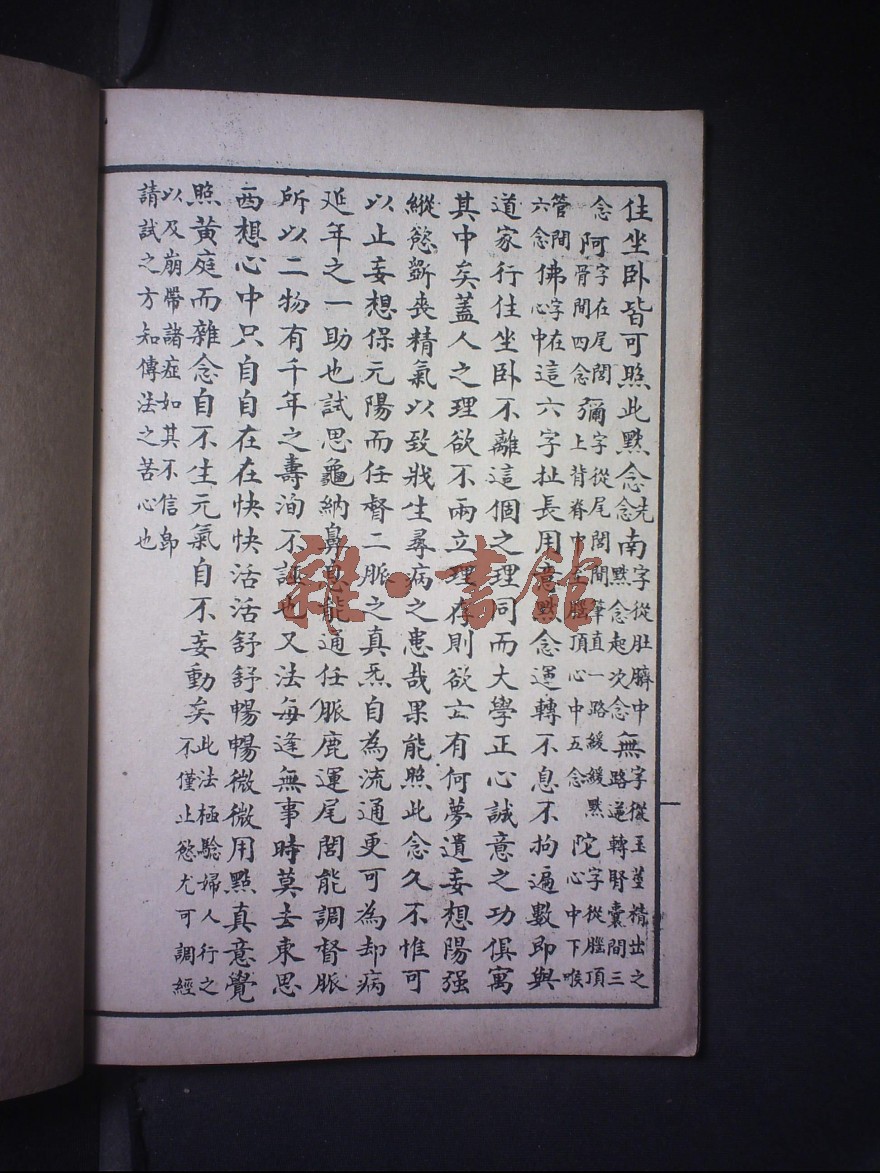 住坐卧皆可照此默念先念南字從肚臍中默念起次念無字從玉莖精出之路逆轉腎囊間三
念阿字在尾閭骨間四念彌字從尾閭間筆直一路緩緩默上背脊中至膛頂心中五念陀字從膛頂心中下喉
管間六念佛字在心中這六字扯長用意默念運轉不息不拘遍數即與
道家行住坐卧不離這個之理同而大學正心誠意之功俱寓
其中矣蓋人之理欲不兩立理存則欲亡有何夢遺妄想陽强
縱慾斵喪精氣以致戕生尋病之患哉果能照此念久不惟可
以止妄想保元陽而任督二脈之真炁自為流通更可為却病
延年之一助也試思龜納鼻息能通任脈鹿運尾閭能調督脈
所以二物有千年之壽洵不誣也又法每逢無事時莫去東思
西想心中只自自在在快快活活舒舒暢暢微微用點真意覺
照黃庭而雜念自不生元氣自不妄動矣此法極驗婦人行之不僅止慾尤可調經
以及崩帶諸症如其不信卽請試之方知傳法之苦心也
雜·書館